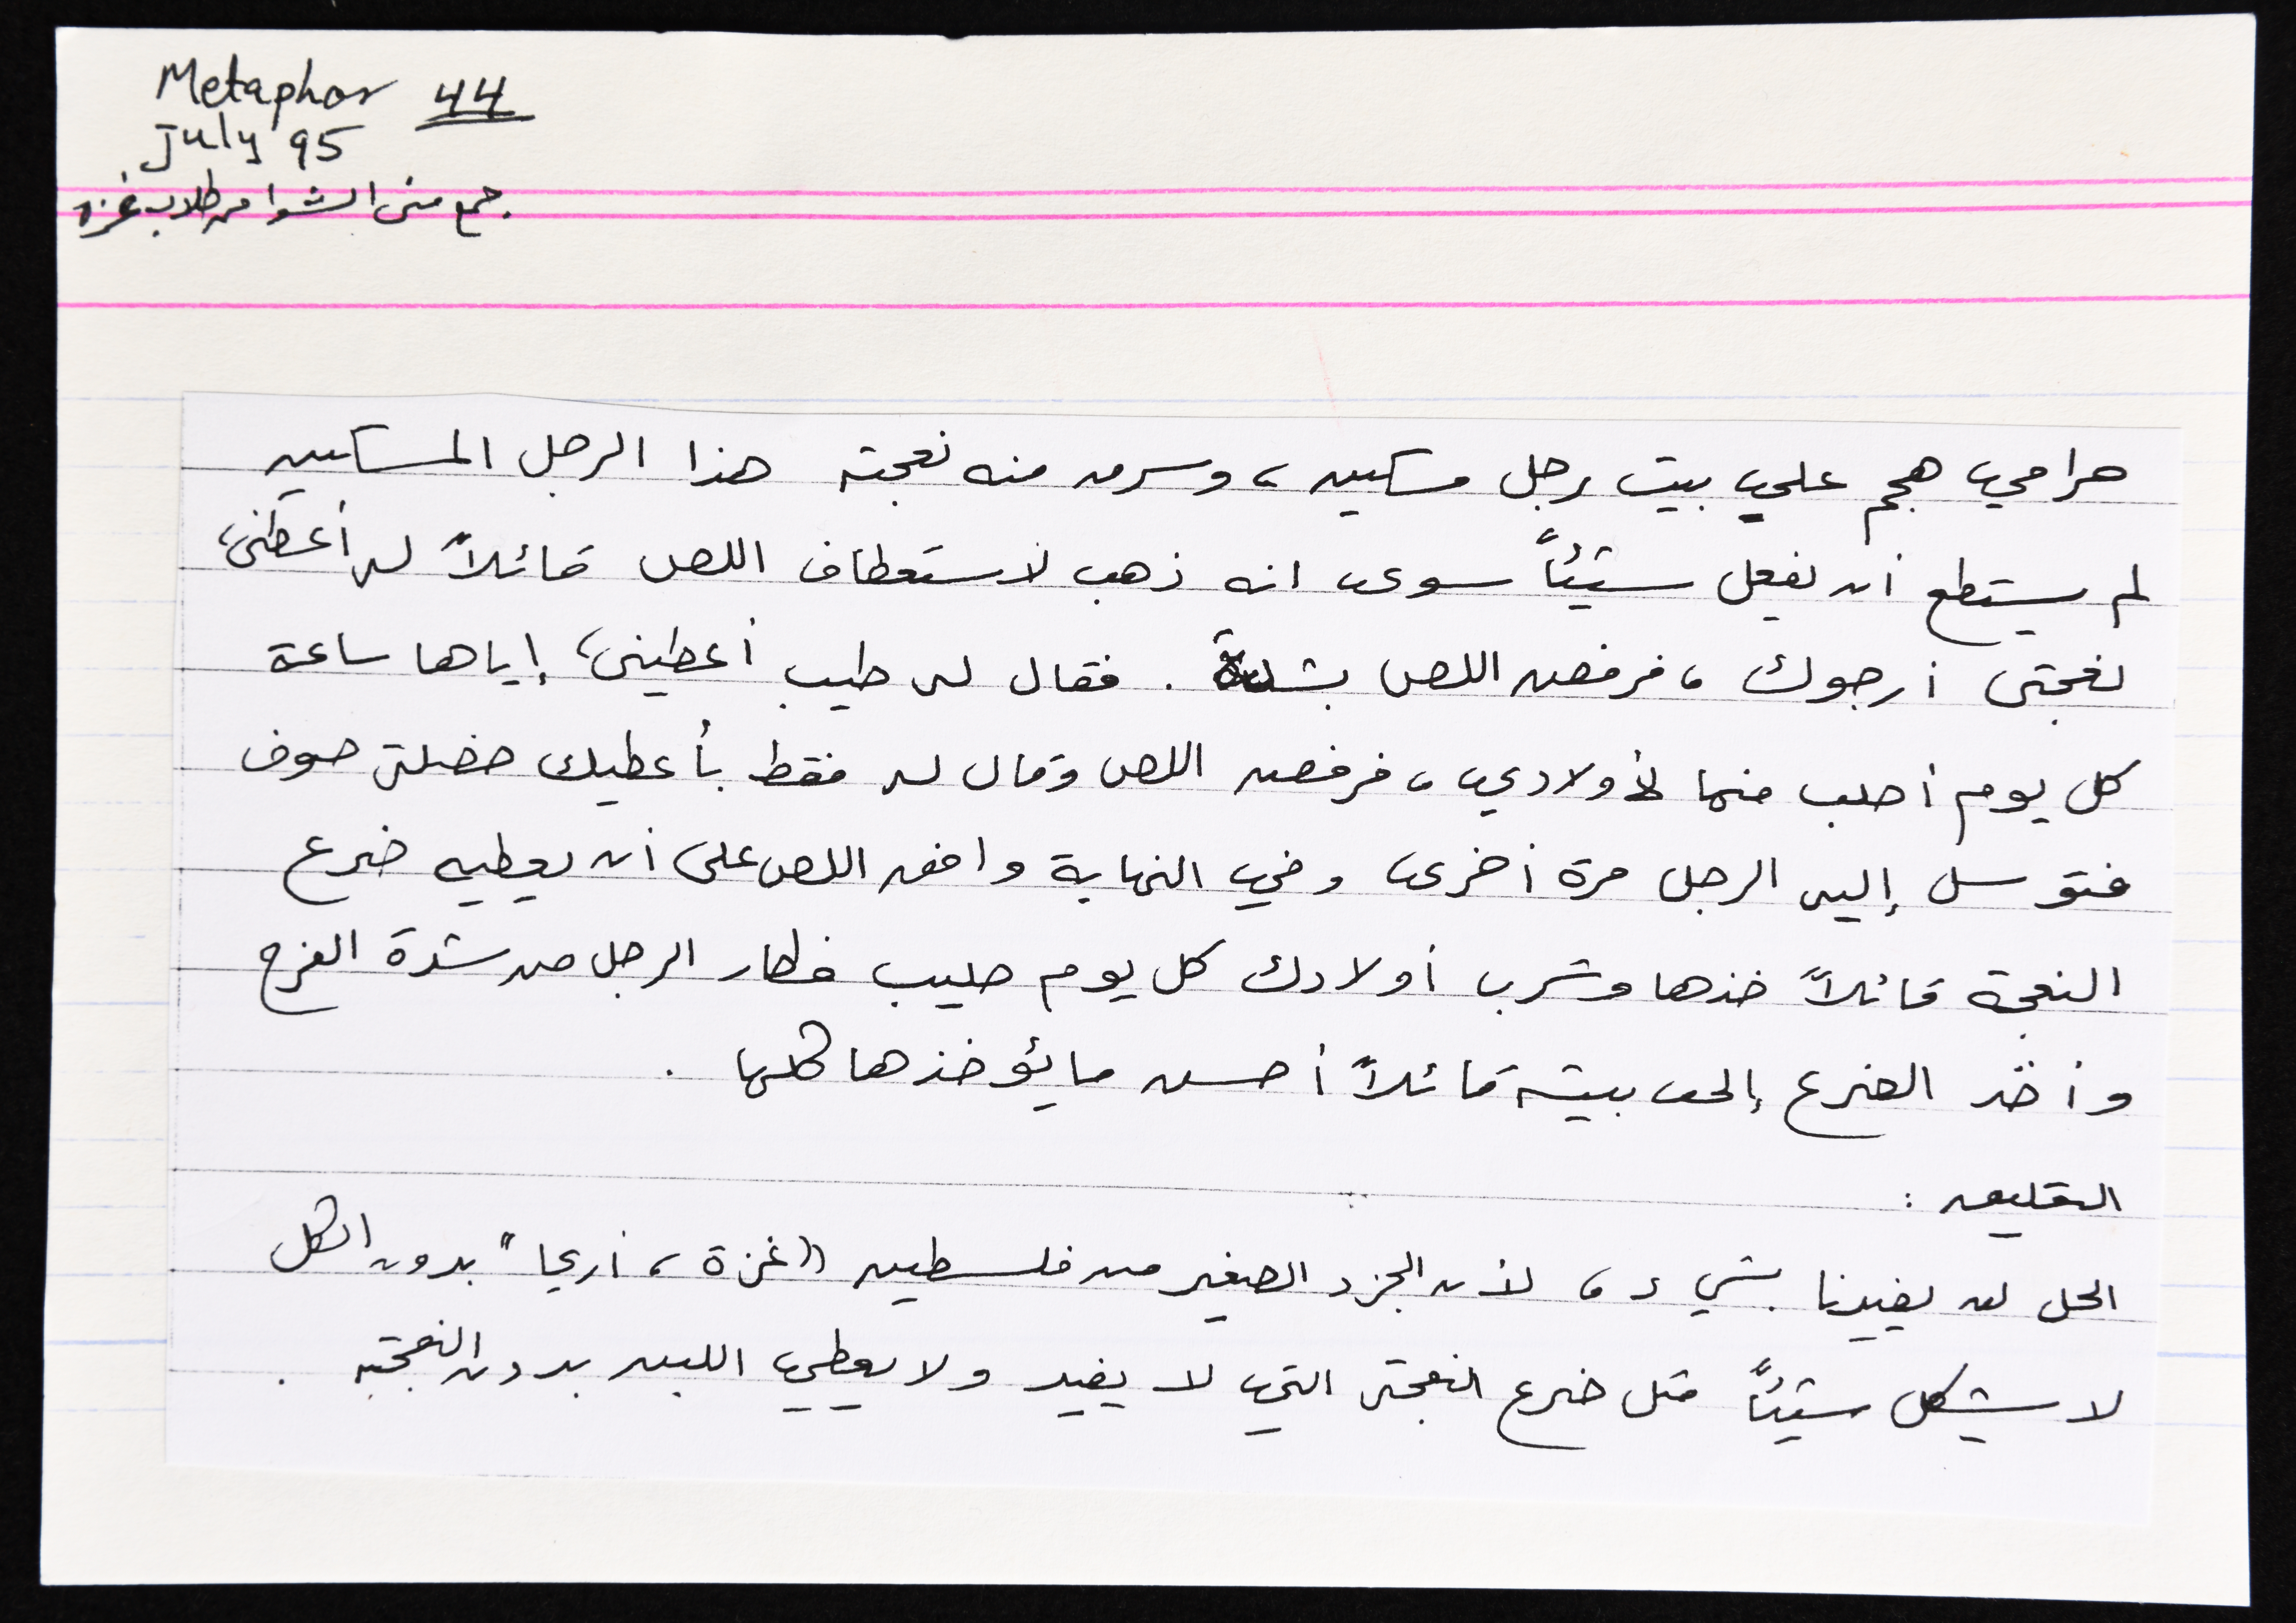 Metaphor 44
July 95
جمع منى الشوا من طلاب غزة
حرامي هجم على بيت رجل مسكين، وسرق منه نعجته هذا الرجل المسكين
لم يستطع أن يفعل شيئاً سوى انه ذهب لاستعطاف اللص قائلاً له أعطني
نعجتي أرجوك، فرفض اللص بشدة. فقال له طيب أعطيني إياها ساعة
كل يوم أحلب منها لأولادي، فرفض اللص وقال له فقط بأعطيك خصلة صوف
فتوسل إليه الرجل مرة أخرى وفي النهاية وافق اللص على أن يعطيه ضرع
النعجة قائلاً خذها وشرب أولادك كل يوم حليب فطار الرجل من شدة الفرح
وأخذ الضرع إلى بيته قائلاً أحسن ما يؤخذها كلها.
التعليق:
الحل لن يفيدنا بشيء، لأن الجزء الصغير من فلسطين "غزة، أريحا" بدون الكل
لا يشكل شيئاً مثل ضرع النعجة التي لا يفيد ولا يعطي اللبن بدون النعجة.